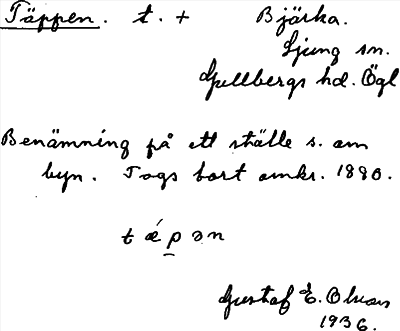 Täppen. t. + Bjärka.
Ljung sn.
Gullbergs hd. Ögl
Benämning på ett ställe s. om
byn. Togs bort omkr. 1880.
tǽpən
Gustaf E. Olsson
1936.